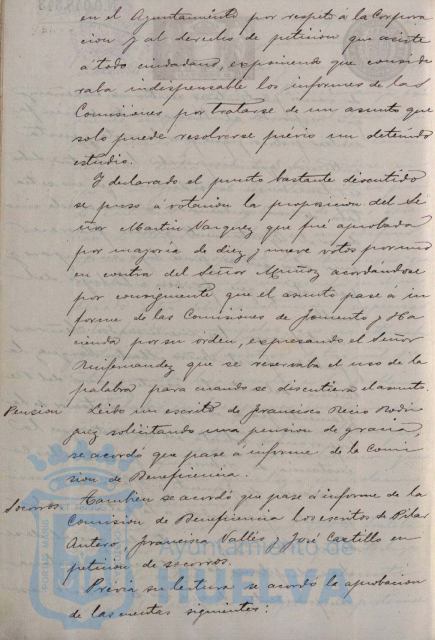 en el Ayuntamiento por respeto á la Corpora
cion y al derecho de peticion que asiste
á todo ciudadano, exponiendo que conside
raba indispensable los informes de las
Comisiones, por tratarse de un asunto que
solo puede resolverse prévio un detenido
estudio.
Y declarado el punto bastante discutido
se puso á votacion la proposicion del Se
ñor Martin Vazquez que fué aprobada
por mayoria de diez y nueve votos por uno
en contra del Señor Muñoz acordándose
por consiguiente que el asunto pase á in
forme de las Comisiones de Fomento y Ha
cienda por su orden, expresando el Señor
que se reservaba el uso de la
palabra para cuando se discutiera el asunto.
Pension Leido un escrito de Francisco Recio Rodri
guez solicitando una pension de gracia,
se acordó que pase á informe de la Comi
sion de Beneficencia.
Socorros Tambien se acordó que pase á informe de la
Comision de Beneficencia los escritos de Pilar
Antero, Francisca Valles y José Castillo en
peticion de socorros.
Prévia su lectura se acordó la aprobacion
de las cuentas siguientes:
Ayuntamiento de
HUELVA